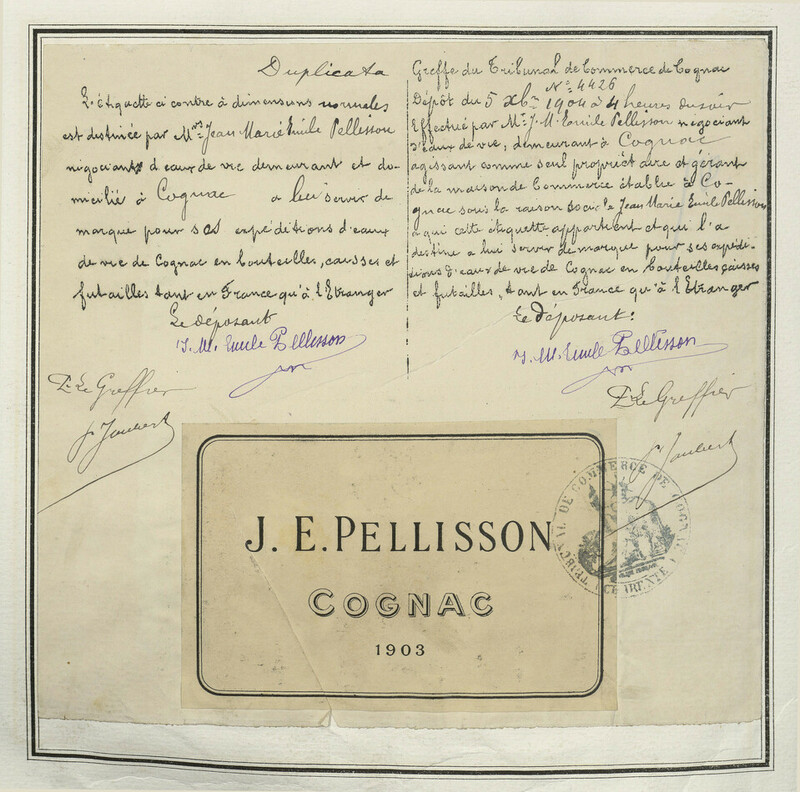 Duplicata
L'étiquette ci contre à dimensions normales
est destinée par Mr. Jean Marie Emile Pellisson
négociant d'eaux de vie demeurant et do-
micilié à Cognac a lui servir de
marque pour ses expéditions d'eaux
de vie de Cognac en bouteilles, caisses et
futailles tant en France qu'à l'Etranger
Le déposant
J. M. Emile Pellisson
Pr. Le Greffier
Joubert
Greffe du Tribunal de Commerce de Cognac
No. 4426
Dépôt du 5 Xbre 1904 à 4 heures du soir
Effectué par Mr. J. M. Emile Pellisson négociant
d'eaux de vie, demeurant à Cognac
agissant comme seul propriétaire et gérant
de la maison de Commerce établie à Co-
gnac sous la raison sociale Jean Marie Emile Pellisson
à qui cette étiquette appartient et qui l'a
destine a lui servir de marque pour ses expédi-
tions d'eaux de vie de Cognac en bouteilles caisses
et futailles, tant en France qu'à l'Etranger
Le déposant:
J. M. Emile Pellisson
Pr. Le Greffier
Joubert
J. E. PELLISSON
COGNAC
1903
TRIBUNAL DE COMMERCE DE COGNAC
(CHARENTE)